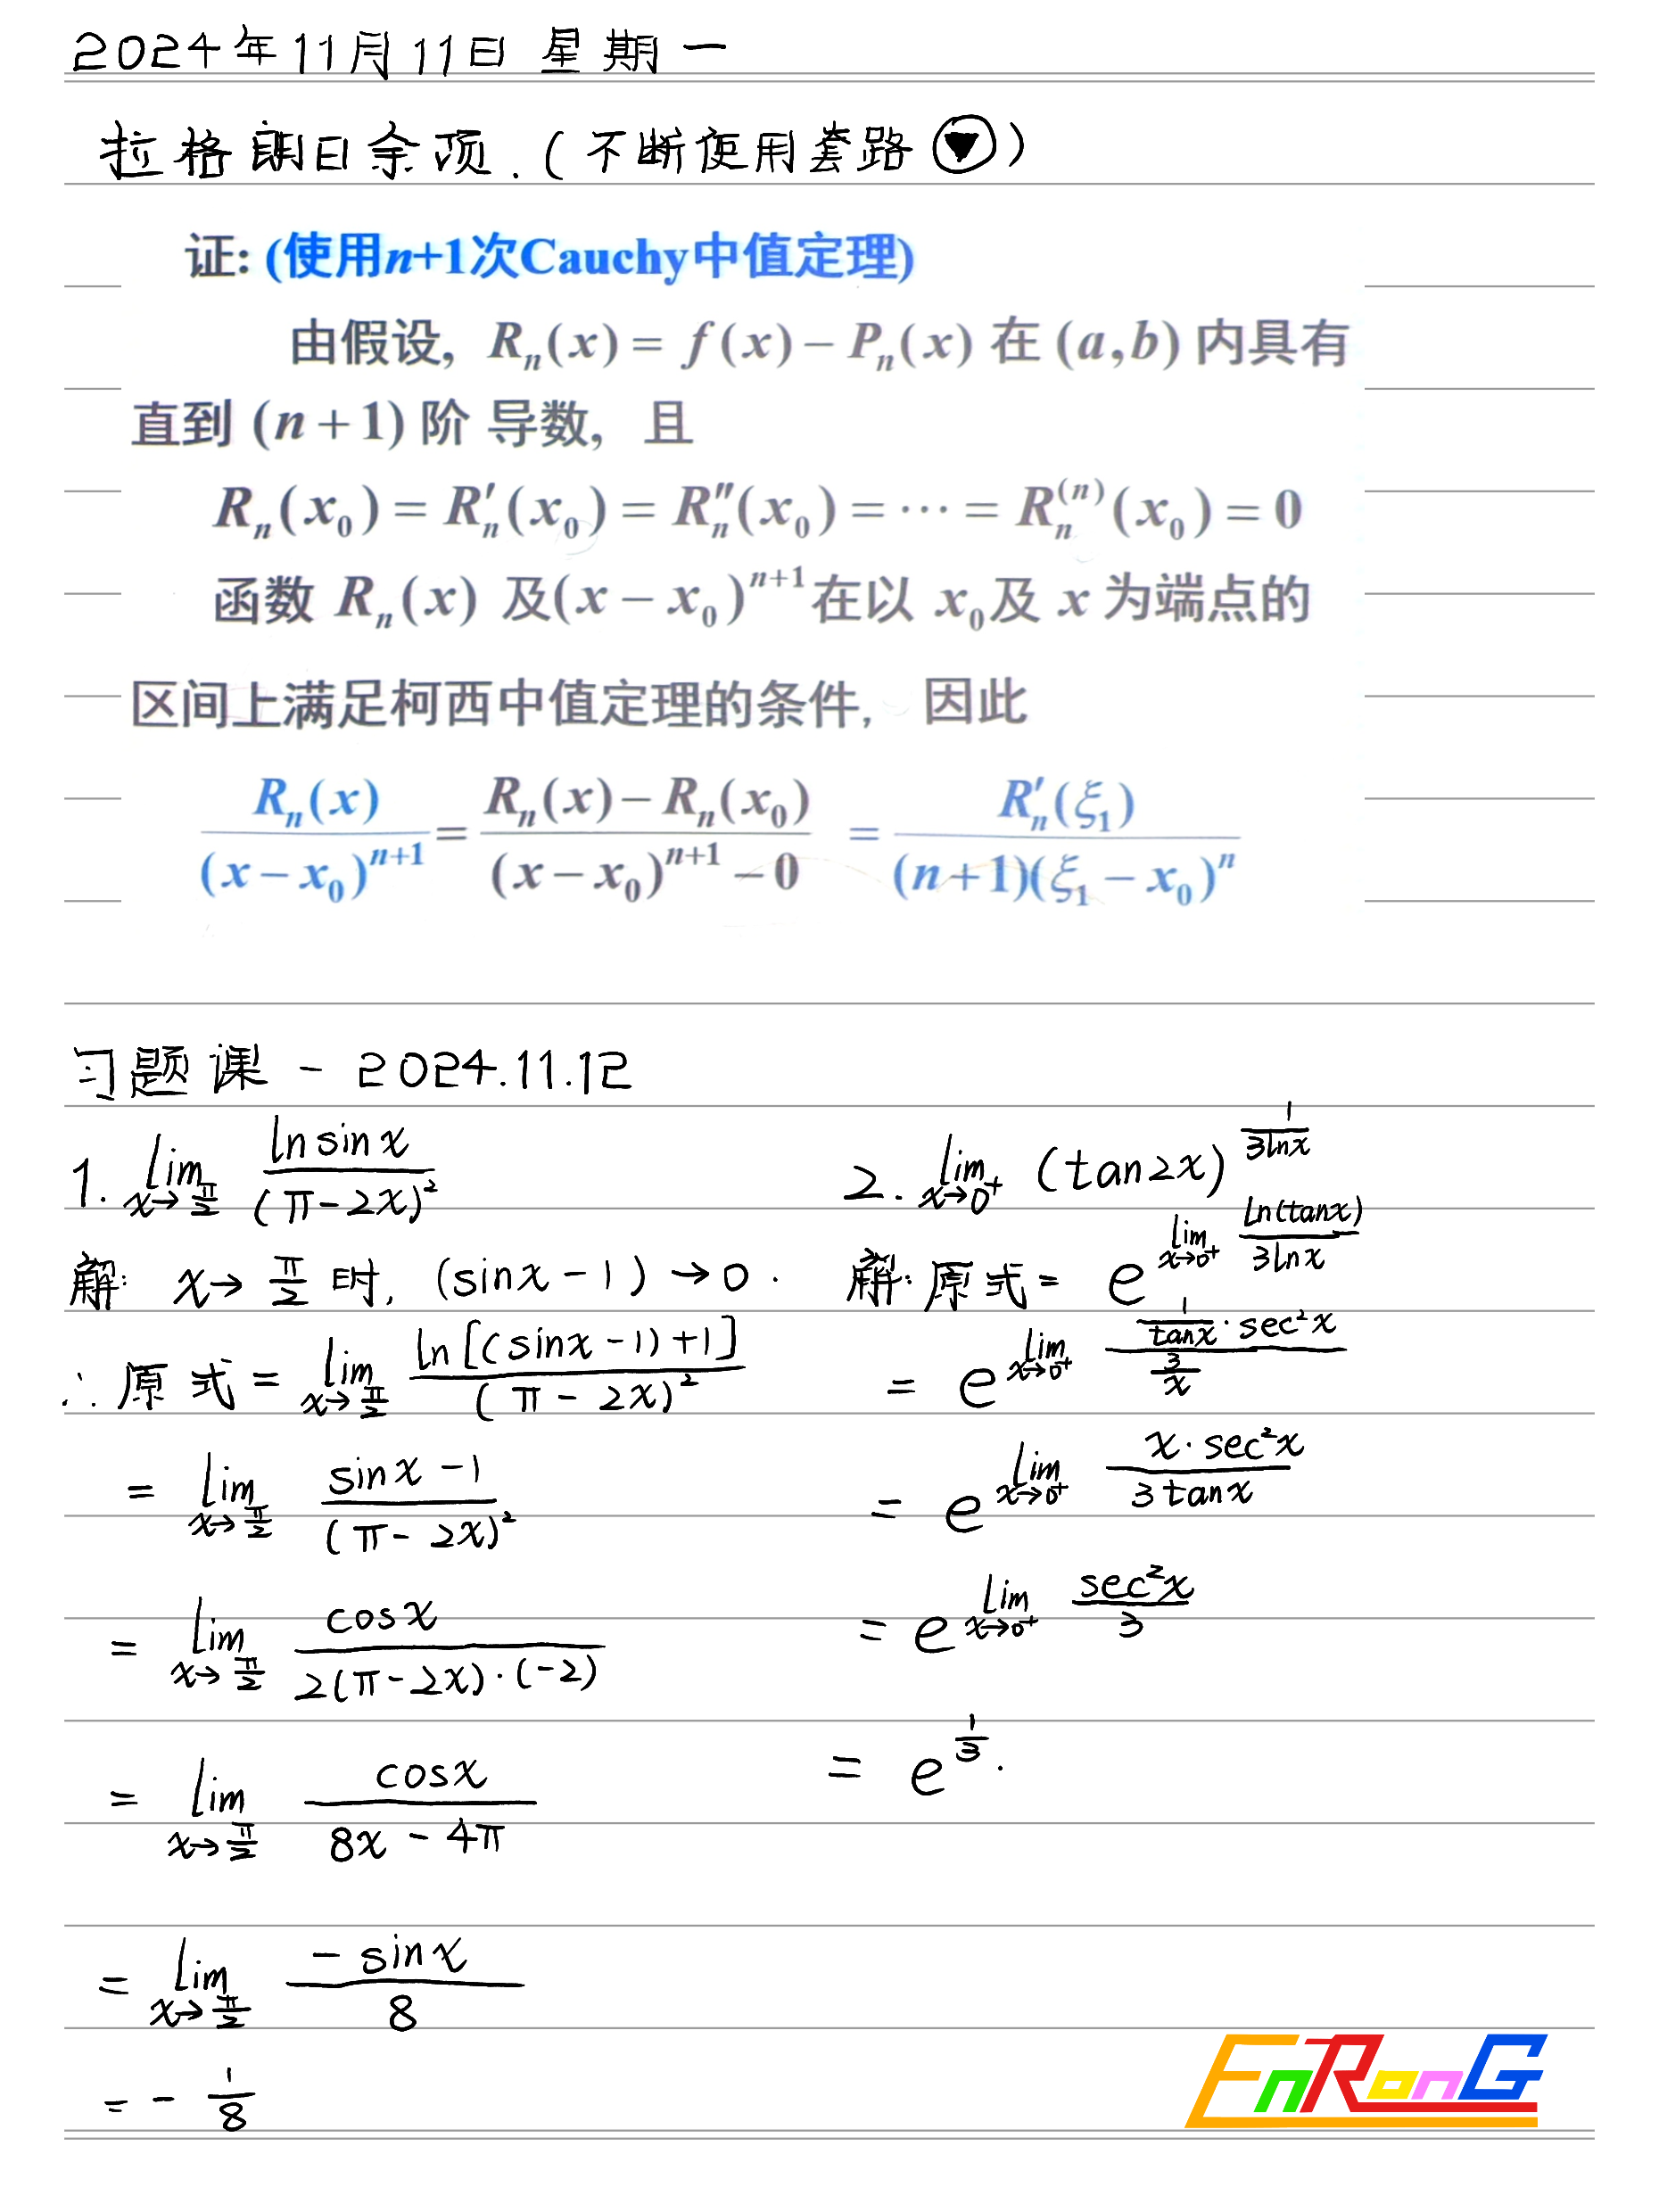 2024年11月11日 星期一
拉格朗日余项.(不断使用套路▼)
证: (使用n+1次Cauchy中值定理)
由假设, Rₙ(x) = f(x) − Pₙ(x) 在 (a,b) 内具有
直到 (n+1) 阶 导数, 且
Rₙ(x₀) = Rₙ′(x₀) = Rₙ″(x₀) = ⋯ = Rₙ⁽ⁿ⁾(x₀) = 0
函数 Rₙ(x) 及(x − x₀)ⁿ⁺¹在以 x₀及 x 为端点的
区间上满足柯西中值定理的条件, 因此
Rₙ(x)/(x−x₀)ⁿ⁺¹ = (Rₙ(x)−Rₙ(x₀))/((x−x₀)ⁿ⁺¹−0) = Rₙ′(ξ₁)/((n+1)(ξ₁−x₀)ⁿ)
习题课 - 2024.11.12
1. lim x→π/2 ln sin x/(π-2x)²
解: x→π/2 时, (sinx-1)→0.
∴原式 = lim x→π/2 ln[(sinx-1)+1]/(π-2x)²
= lim x→π/2 (sinx-1)/(π-2x)²
= lim x→π/2 cosx/(2(π-2x)·(-2))
= lim x→π/2 cosx/(8x-4π)
= lim x→π/2 -sinx/8
= -1/8
2. lim x→0⁺ (tan2x)^(1/(3lnx))
解:原式 = e^(lim x→0⁺ ln(tanx)/(3lnx))
= e^(lim x→0⁺ (1/tanx·sec²x)/(3/x))
= e^(lim x→0⁺ x·sec²x/(3tanx))
= e^(lim x→0⁺ sec²x/3)
= e^(1/3).
EnRonG